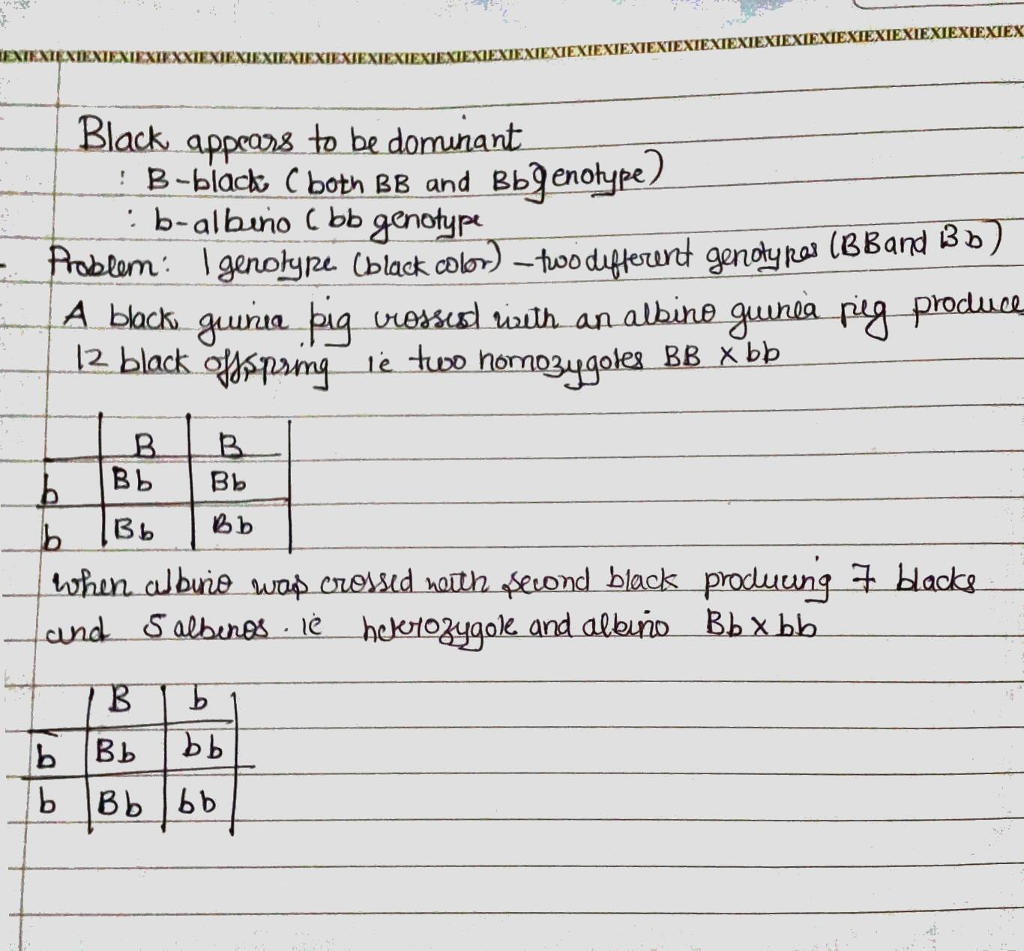 Black appears to be dominant
: B-black (both BB and Bb genotype)
: b-albino (bb genotype
Problem: 1 genotype (black color) - two different genotypes (BB and Bb)
A black guinea pig crossed with an albino guinea pig produce
12 black offspring ie two homozygotes BB X bb
B B
b Bb Bb
b Bb Bb
when albino was crossed with second black producing 7 blacks
and 5 albenos. ie heterozygote and albino Bb x bb
B b
b Bb bb
b Bb bb